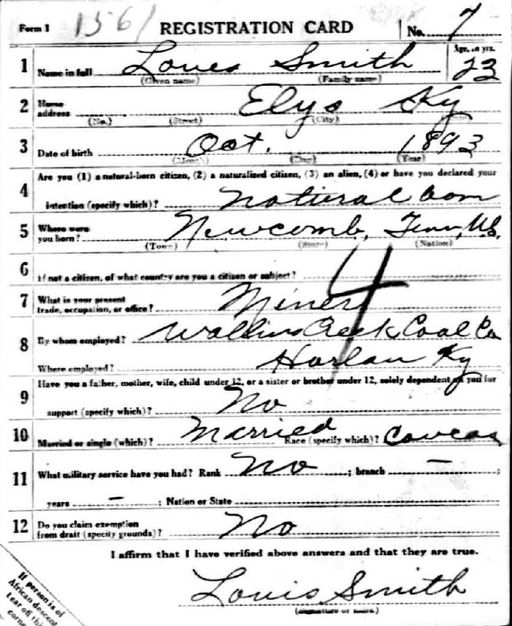 Form 1 1561 REGISTRATION CARD No. 7
1 Name in full Loues Smith Age, in yrs. 23
(Given name) (Family name)
2 Home address Elys Ky
(No.) (Street) (City)
3 Date of birth Oct. 1893
(Month) (Day) (Year)
4 Are you (1) a natural-born citizen, (2) a naturalized citizen, (3) an alien, (4) or have you declared your
intention (specify which)? Natural born
5 Where were you born? Newcomb, Tenn, US.
(Town) (State) (Nation)
6 If not a citizen, of what country are you a citizen or subject?
7 What is your present trade, occupation, or office? Miner 4
8 By whom employed? Wallins Creek Coal Co
Where employed? Harlan Ky
9 Have you a father, mother, wife, child under 12, or a sister or brother under 12, solely dependent on you for
support (specify which)? No
10 Married or single (which)? Married Race (specify which)? Caucas
11 What military service have you had? Rank No ; branch –
years – ; Nation or State
12 Do you claim exemption from draft (specify grounds)? No
I affirm that I have verified above answers and that they are true.
Louis Smith
(Signature or mark)
If person is of
African descent
tear off this
corner